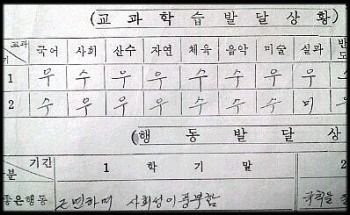 (교과학습발달상황)
교과 국어 사회 산수 자연 체육 음악 미술 실과
1 우 수 우 우 수 수 우 우
2 수 우 우 우 수 수 수 미
(행동발달상
기간 1 학기말 2
분
좋은행동 근면하며 사회성이 풍부함